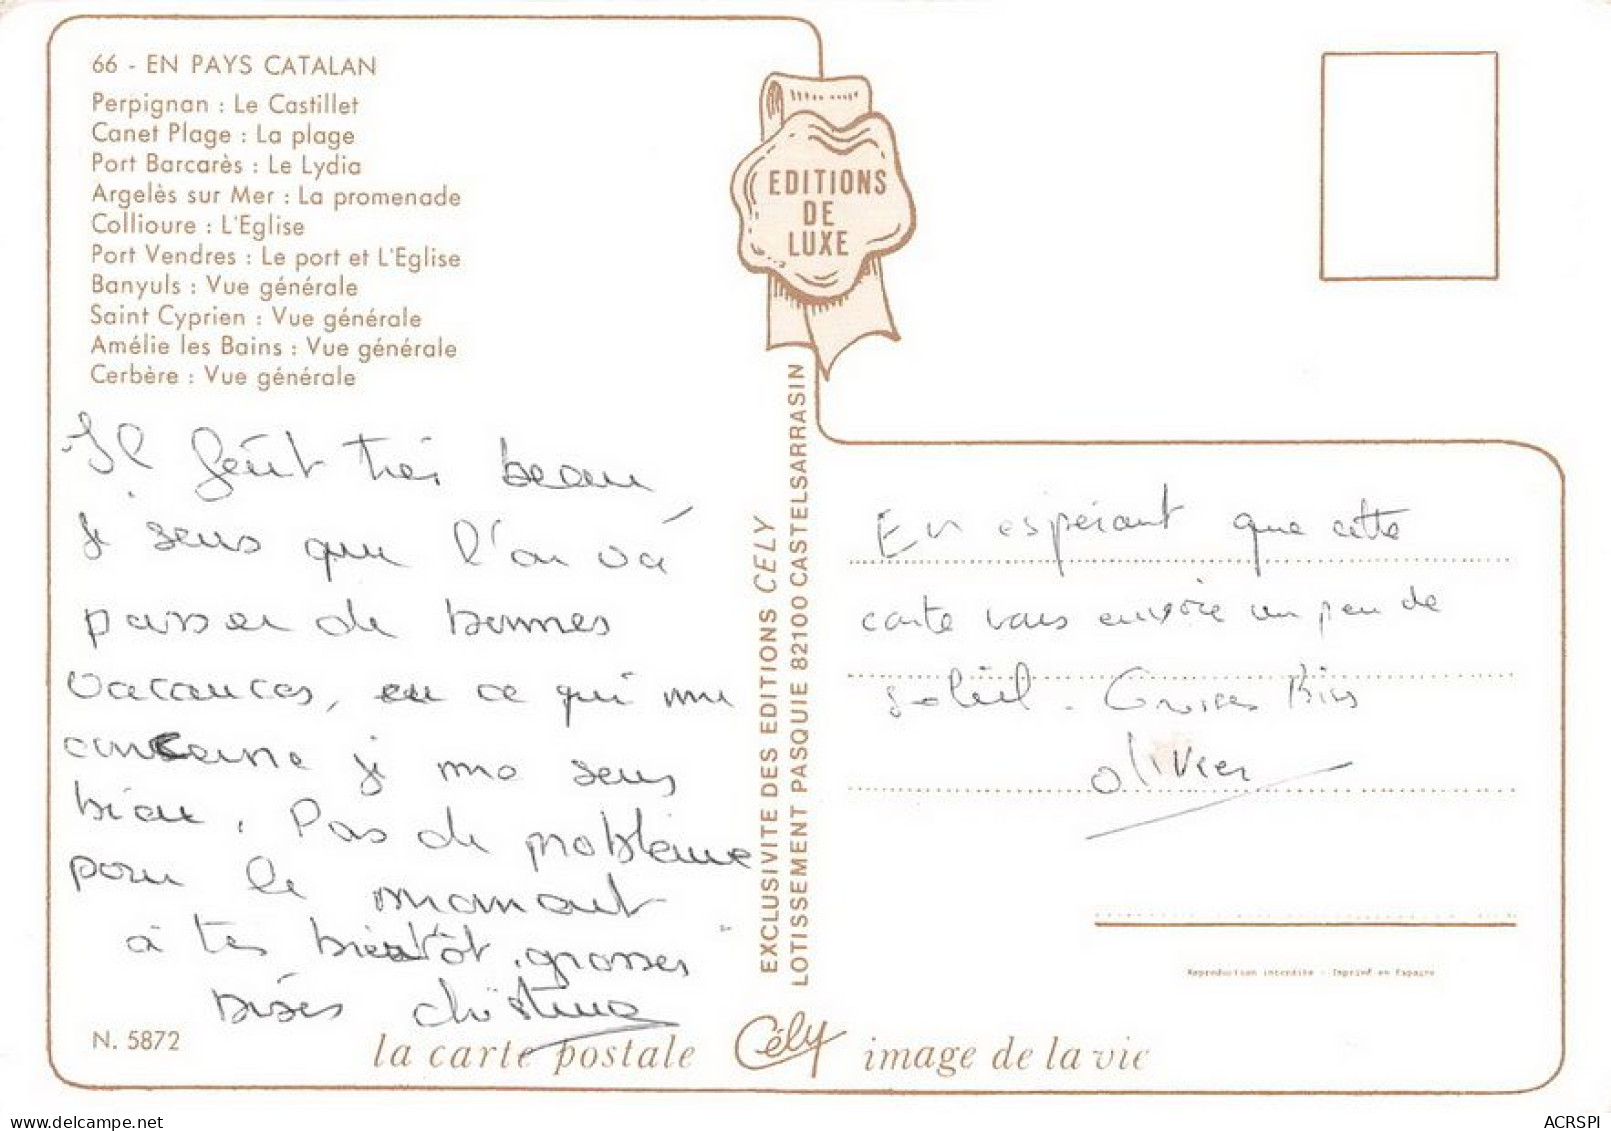 66 - EN PAYS CATALAN
Perpignan : Le Castillet
Canet Plage : La plage
Port Barcarès : Le Lydia
Argelès sur Mer : La promenade
Collioure : L'Eglise
Port Vendres : Le port et L'Eglise
Banyuls : Vue générale
Saint Cyprien : Vue générale
Amélie les Bains : Vue générale
Cerbère : Vue générale
Il fait très beau
je sens que l'on va
passer de bonnes
vacances, en ce qui me
concerne je me sens
bien. Pas de problème
pour le moment
à très bientôt, grosses
bises Christine
N. 5872
la carte postale
EDITIONS
DE
LUXE
EXCLUSIVITE DES EDITIONS CELY
LOTISSEMENT PASQUIE 82100 CASTELSARRASIN
Cély
image de la vie
En espérant que cette
carte vous envoie un peu de
soleil. Grosses Bises
Olivier
Reproduction interdite - Imprimé en Espagne
www.delcampe.net
ACRSPI